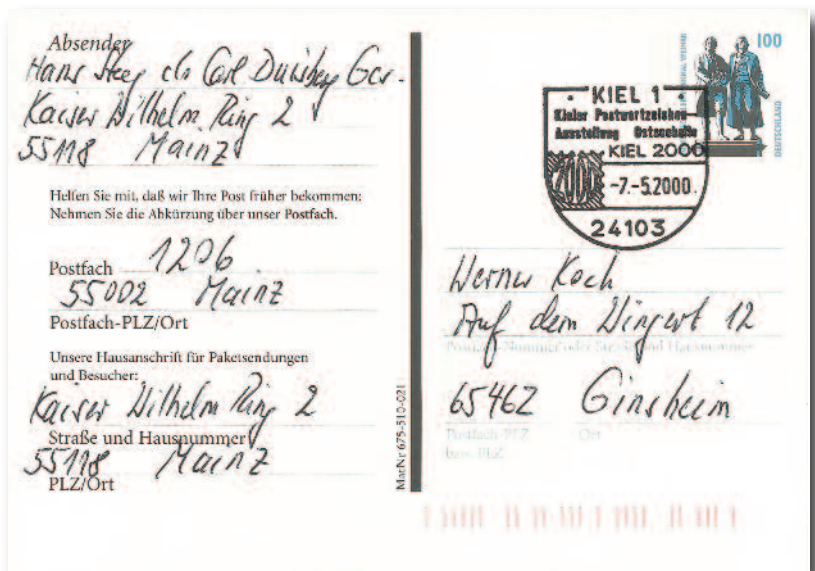 Absender
Hans Steeg c/o Carl Duisberg Ges.
Kaiser Wilhelm Ring 2
55118 Mainz
Helfen Sie mit, daß wir Ihre Post früher bekommen:
Nehmen Sie die Abkürzung über unser Postfach.
Postfach 1206
55002 Mainz
Postfach-PLZ/Ort
Unsere Hausanschrift für Paketsendungen
und Besucher:
Kaiser Wilhelm Ring 2
Straße und Hausnummer
55118 Mainz
PLZ/Ort
MatNr 675-510-021
100
DEUTSCHLAND
KIEL 1
Kieler Postwertzeichen-
Ausstellung Ostseehalle
KIEL 2000
2000
-7.-5.2000.
24103
Werner Koch
Auf dem Wingert 12
Postfach-Nummer oder Straße und Hausnummer
65462 Ginsheim
Postfach-PLZ Ort
bzw. PLZ